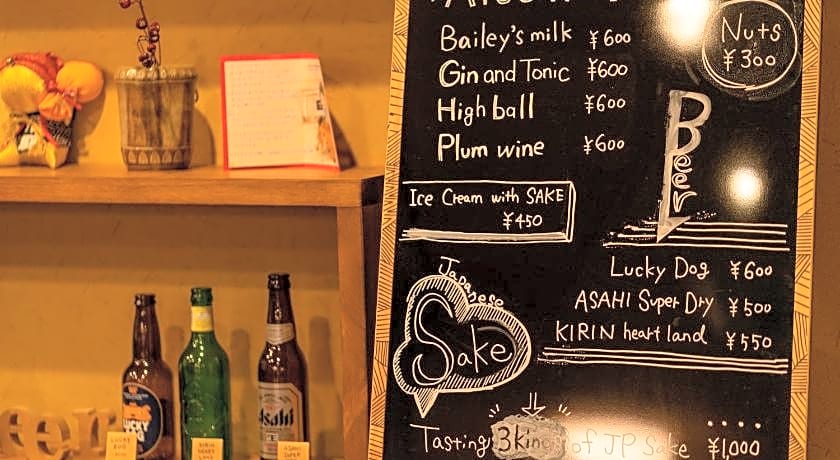 Bailey's milk ¥600
Gin and Tonic ¥600
High ball ¥600
Plum wine ¥600
Nuts
¥300
Beer
Ice Cream with SAKE
¥450
Lucky Dog ¥600
ASAHI Super Dry ¥500
KIRIN heart land ¥550
Japanese
Sake
Tasting 3 kind of JP Sake ¥1,000
LUCKY
DOG
Asahi
LUCKY
DOG
KIRIN
HEART
LAND
ASAHI
SUPER